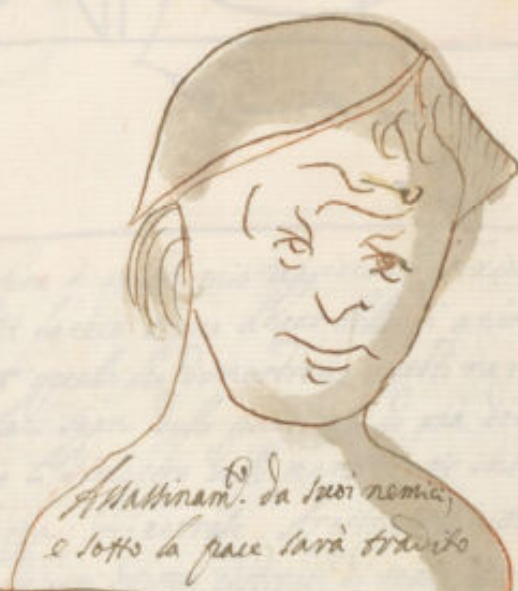 Assassinam.to da suoi nemici;
e sotto la pace sarà tradito